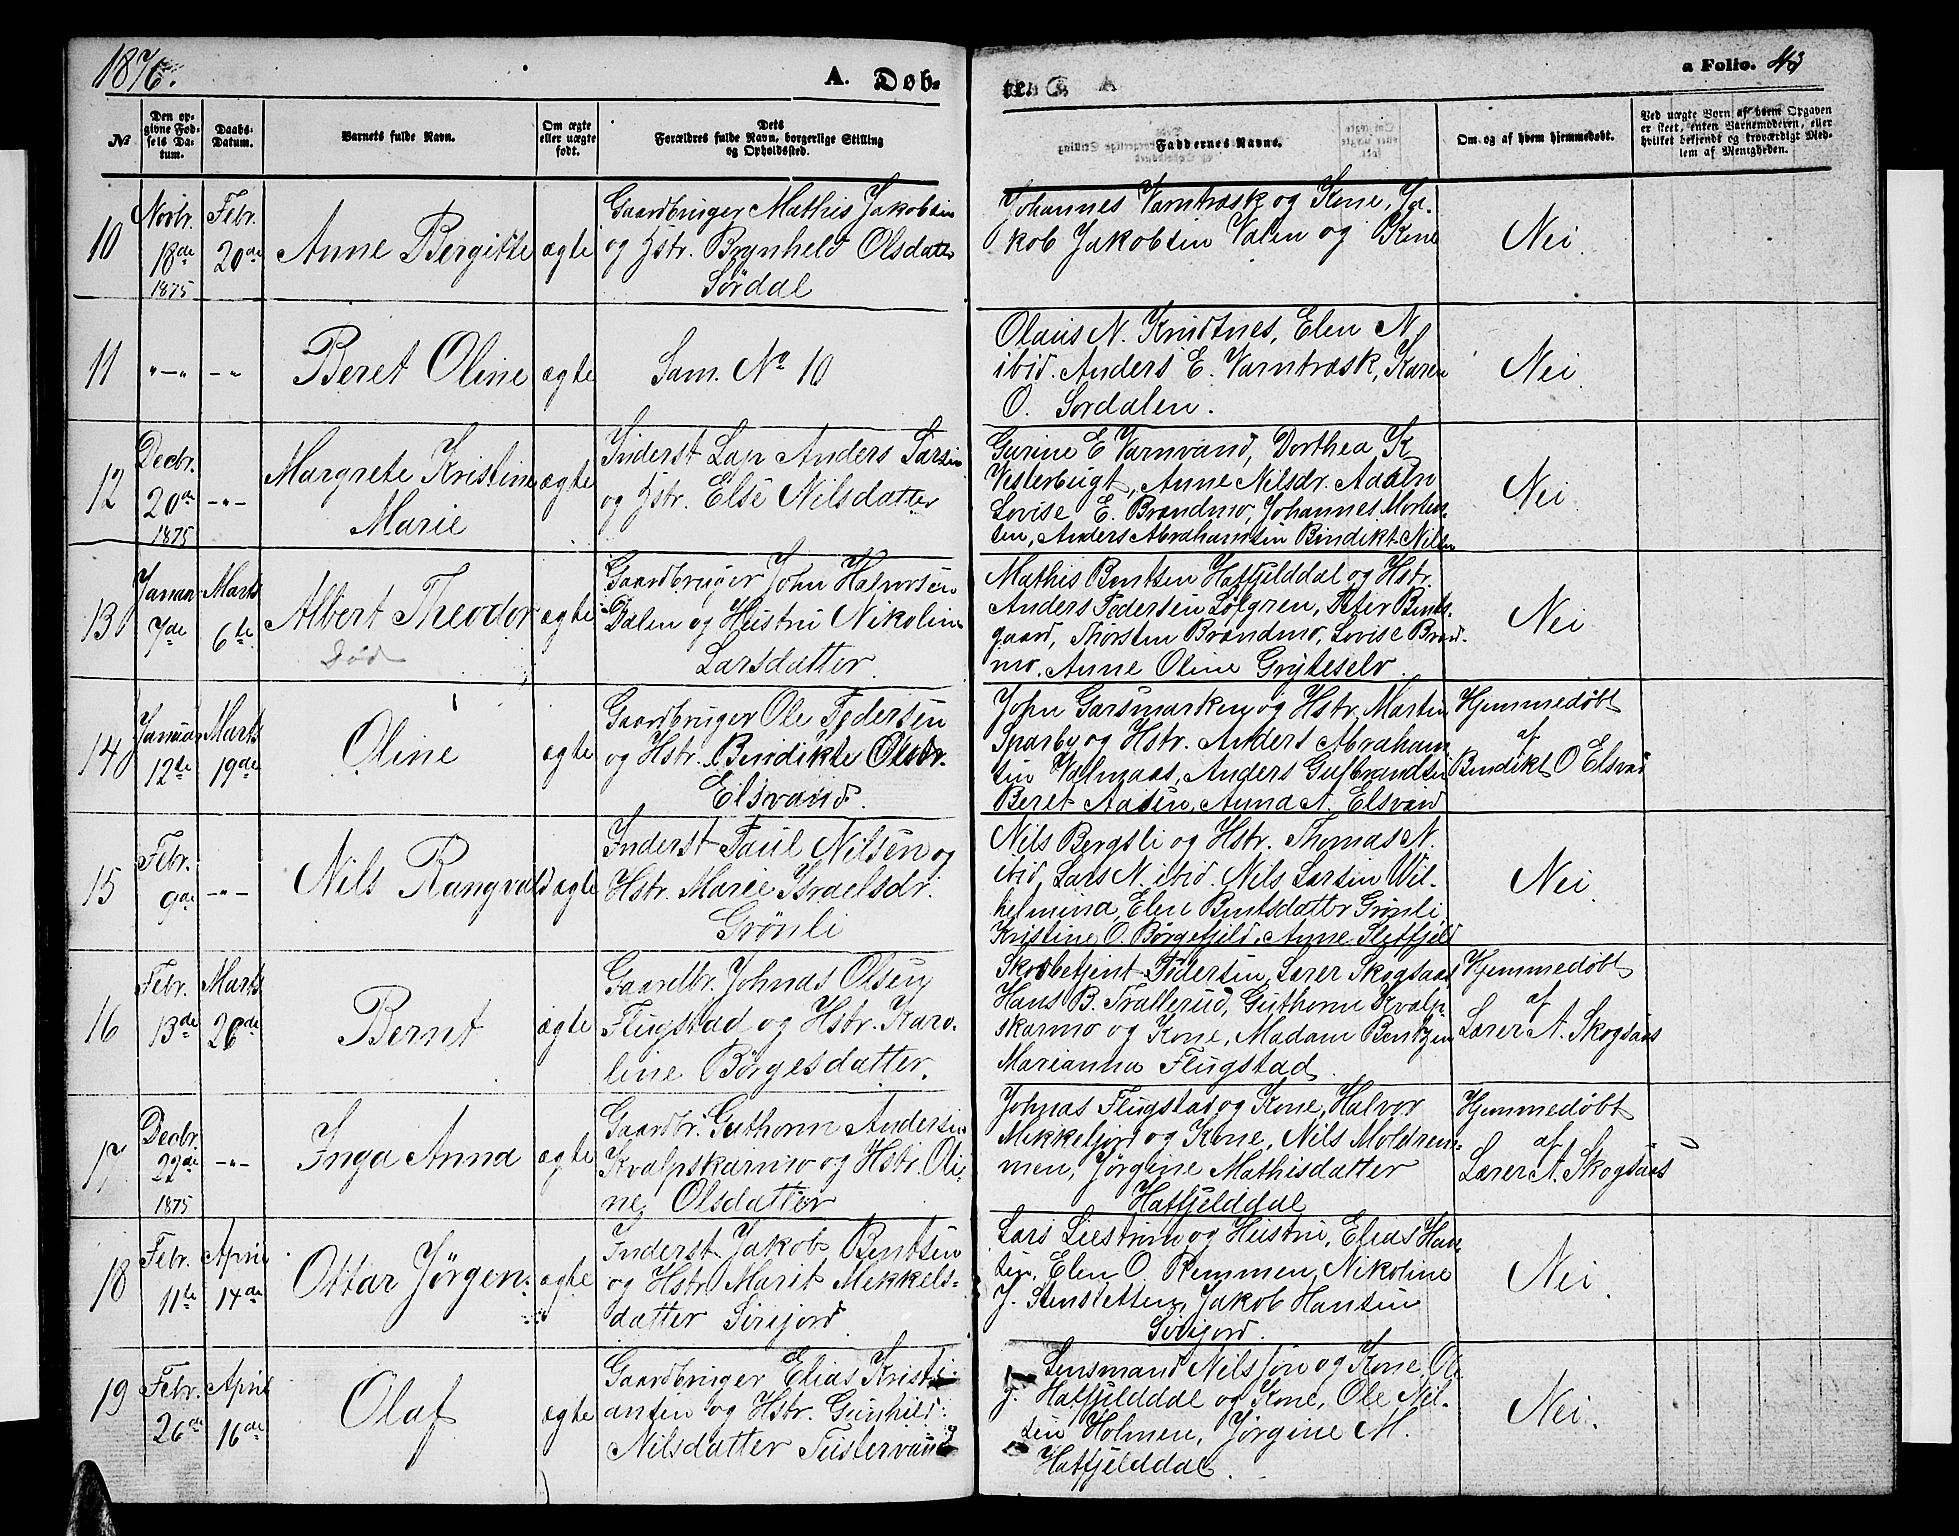 1876.
A. Døb-
te.
a Folio. 43
№
Den opgivne Fødsels Datum.
Daabs-Datum.
Barnets fulde Navn.
Om ægte eller uægte født.
Dets Forældres fulde Navn, borgerlige Stilling og Opholdssted.
Faddernes Navne.
Om og af hvem hjemmedøbt.
Ved uægte Børn af hvem Opgaven er skeet, enten Barnemoderen, eller hvilket bekjendt og troværdigt Medlem af Menigheden.
10
Novbr. 18de 1875
Febr. 20de
Anne Bergitte
ægte
Gaardbruger Mathis Jakobsen
og Hstr. Brynheld Olsdatter
Sørdal
Johannes Varntræsk og Kone, Ja-
kob Jakobsen Valen og Kone
Nei.
11
"—"
-"
Beret Oline
ægte
Sam. No 10
Olaus N. Knudtnes, Elen N.
ibid. Anders E. Varntræsk, Karen
O. Sørdalen.
Nei.
12
Decbr. 20de 1875
-"-
Margrete Kristine
Marie
ægte
Inderst Lap Anders Larsen
og Hstr. Else Nilsdatter
Gurine E Varnvand, Dorthea K
Vesterbugt, Anne Nilsdr. Aadln
Lovise E. Brandmo, Johannes Morten-
sen, Anders Abrahamsen Bendikt Nilsen
Nei.
13
Januar 7de
Marts 6te
Albert Theodor
Død
ægte
Gaardbruger John Halvorsen
Dalen og Hustru Nikoline
Larsdatter.
Mathis Bentsen Hatfjelddal og Hstr.
Anders Pedersen Løfgren, Peter Bents-
gaard, Thorsten Brandmo, Lovise Brand-
mo, Anne Oline Gryteselv.
Nei
14
Januar 12te
Marts 19de
Oline
ægte
Gaardbruger Ole Pedersen
og Hstr. Bendikte Olsdr.
Elsvand.
John Garsmarken og Hstr. Marten
Sparby og Hstr. Anders Abraham-
sen Valmaas, Anders Gulbrandsen
Beret Aasen, Anna A. Elsvand
Hjemmedøbt
af
Bendikt O Elsvand
15
Febr. 9de
-"-
Nils Rangvald
ægte
Inderst Paul Nilsen og
Hstr. Marie Israelsdr.
Grönli
Nils Bergsli og Hstr. Thomas N.
ibid, Lars N. ibid. Nils Larsen Wil-
helmina, Elen Bentsdatter Grönli,
Kristine O. Børgefjeld, Anne Sletfjeld
Nei.
16
Febr. 13de
Marts 26de
Bernt
ægte
Gaardbr. Johnas Olsen
Flugstad og Hstr. Karo-
line Børgesdatter.
Skovbetjent Pedersen, Lærer Skogsaas
Hans B. Trallerud, Guthorm Kvalp-
skarmo og Kone, Madam Bentzen
Marianna Flugstad.
Hjemmedøbt
af
Lærer A. Skogsaas
17
Decbr. 22de 1875
-"-
Inga Anna
ægte
Gaardbr. Guthorm Andersen
Kvalpskarmo og Hstr. Oli-
ne Olsdatter
Johnas Flugstad og Kone, Halvor
Mikkeljord og Kone, Nils Moldrem-
men, Jørgine Mathisdatter
Hatfjelddal
Hjemmedøbt
af
Lærer A. Skogsaas
18
Febr. 11te
April 14de
Ottar Jørgen.
ægte
Inderst Jakob Bentsen
og Hstr. Marit Mikkels-
datter Sørijord.
Lars Liestrmo og Hustru, Elias Han-
sen, Elen O. Remmen, Nikoline
J. Stensletten, Jakob Hansen
Sørijord.
Nei.
19
Febr. 26de
April 16de
Olaf
ægte
Gaardbruger Elias Kristi-
ansen og Hstr. Gunhild
Nilsdatter Tustervand
Lensmand Nilsson og Kone, Ole
J. Hatfjelddal og Kone, Ole Nil-
sen Holmen, Jørgine M.
Hatfjelddal.
Nei.